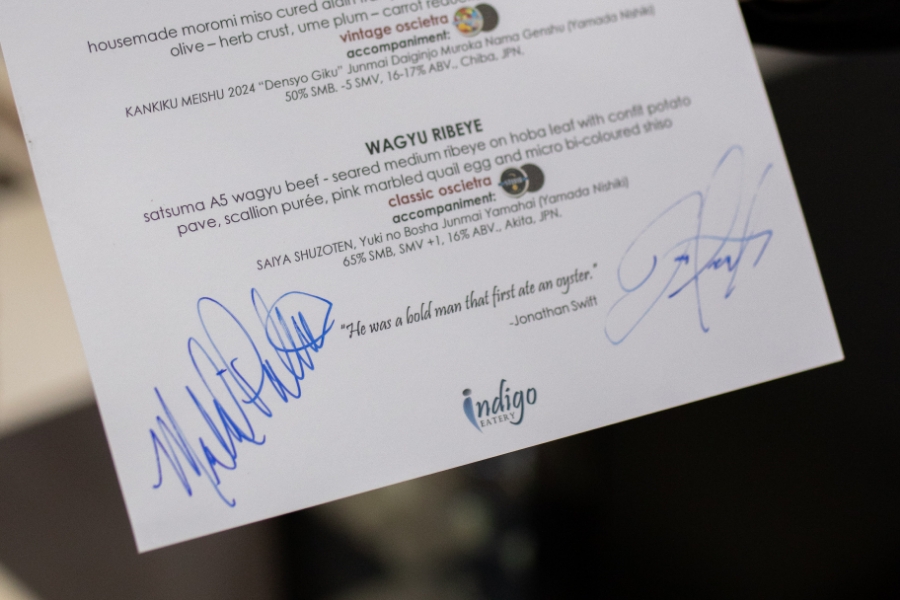 housemade moromi miso cured
olive – herb crust, ume plum – carrot
vintage oscietra
accompaniment:
KANKIKU MEISHU 2024 "Densyo Giku" Junmai Daiginjo Muroka Nama Genshu (Yamada Nishiki)
50% SMB. -5 SMV, 16-17% ABV., Chiba, JPN.
WAGYU RIBEYE
satsuma A5 wagyu beef - seared medium ribeye on hoba leaf with confit potato
pave, scallion purée, pink marbled quail egg and micro bi-coloured shiso
classic oscietra
accompaniment:
SAIYA SHUZOTEN, Yuki no Bosha Junmai Yamahai (Yamada Nishiki)
65% SMB, SMV +1, 16% ABV., Akita, JPN.
"He was a bold man that first ate an oyster."
-Jonathan Swift
indigo
EATERY